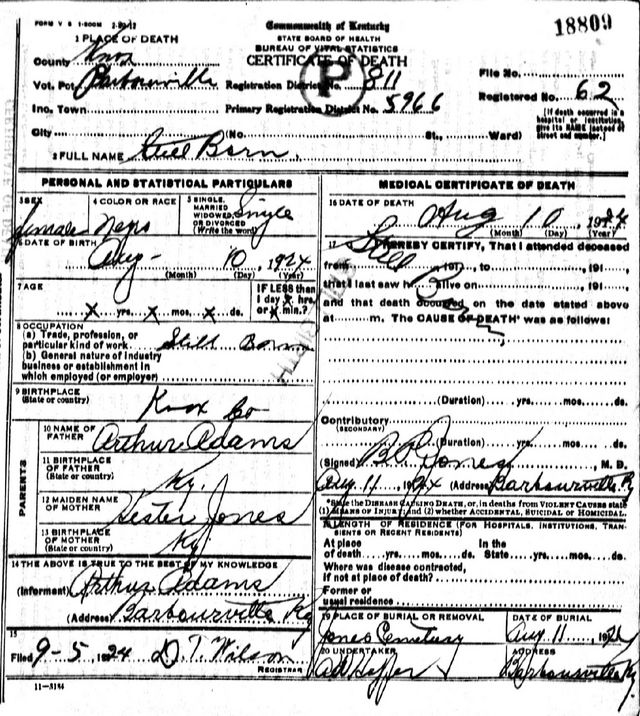 FORM V S 1-500M 2-20-12
Commonwealth of Kentucky
STATE BOARD OF HEALTH
BUREAU OF VITAL STATISTICS
CERTIFICATE OF DEATH
18809
1 PLACE OF DEATH
County Knox
Vot. Pct. Barbourville Registration District No. 811
File No.
Inc. Town Primary Registration District No. 5966
Registered No. 62
City (No. St., Ward)
[If death occurred in a hospital or institution, give its NAME instead of street and number.]
P
2 FULL NAME Still Born
PERSONAL AND STATISTICAL PARTICULARS
3 SEX female
4 COLOR OR RACE Negro
5 SINGLE, MARRIED WIDOWED, OR DIVORCED (Write the word) Single
6 DATE OF BIRTH Aug - 10, 1924
(Month) (Day) (Year)
7 AGE
x yrs. x mos. x ds.
IF LESS than 1 day x hrs. or x min.?
8 OCCUPATION
(a) Trade, profession, or particular kind of work Still Born
(b) General nature of industry business or establishment in which employed (or employer)
9 BIRTHPLACE (State or country) Knox Co
PARENTS
10 NAME OF FATHER Arthur Adams
11 BIRTHPLACE OF FATHER (State or country) Ky.
12 MAIDEN NAME OF MOTHER Hester Jones
13 BIRTHPLACE OF MOTHER (State or country) Ky
14 THE ABOVE IS TRUE TO THE BEST OF MY KNOWLEDGE
(Informant) Arthur Adams
(Address) Barbourville Ky
15
Filed 9-5 1924 D. T. Wilson
REGISTRAR
11-3184
MEDICAL CERTIFICATE OF DEATH
16 DATE OF DEATH Aug 10, 1924
(Month) (Day) (Year)
17 I HEREBY CERTIFY, That I attended deceased
from , 191 , to , 191 ,
that I last saw h alive on , 191 ,
and that death occurred on the date stated above
at m. The CAUSE OF DEATH* was as follows:
Still Born
(Duration) yrs. mos. ds.
Contributory
(SECONDARY)
(Duration) yrs. mos. ds.
(Signed) Jones, M. D.
Aug. 11, 1924 (Address) Barbourville Ky
*State the DISEASE CAUSING DEATH, or, in deaths from VIOLENT CAUSES state (1) MEANS OF INJURY; and (2) whether ACCIDENTAL, SUICIDAL or HOMICIDAL.
LENGTH OF RESIDENCE (FOR HOSPITALS, INSTITUTIONS, TRANSIENTS OR RECENT RESIDENTS)
At place of death yrs. mos. ds. In the State yrs. mos. ds.
Where was disease contracted,
if not at place of death?
Former or
usual residence
19 PLACE OF BURIAL OR REMOVAL Jones Cemetery
DATE OF BURIAL Aug 11, 1924
20 UNDERTAKER
ADDRESS Barbourville Ky